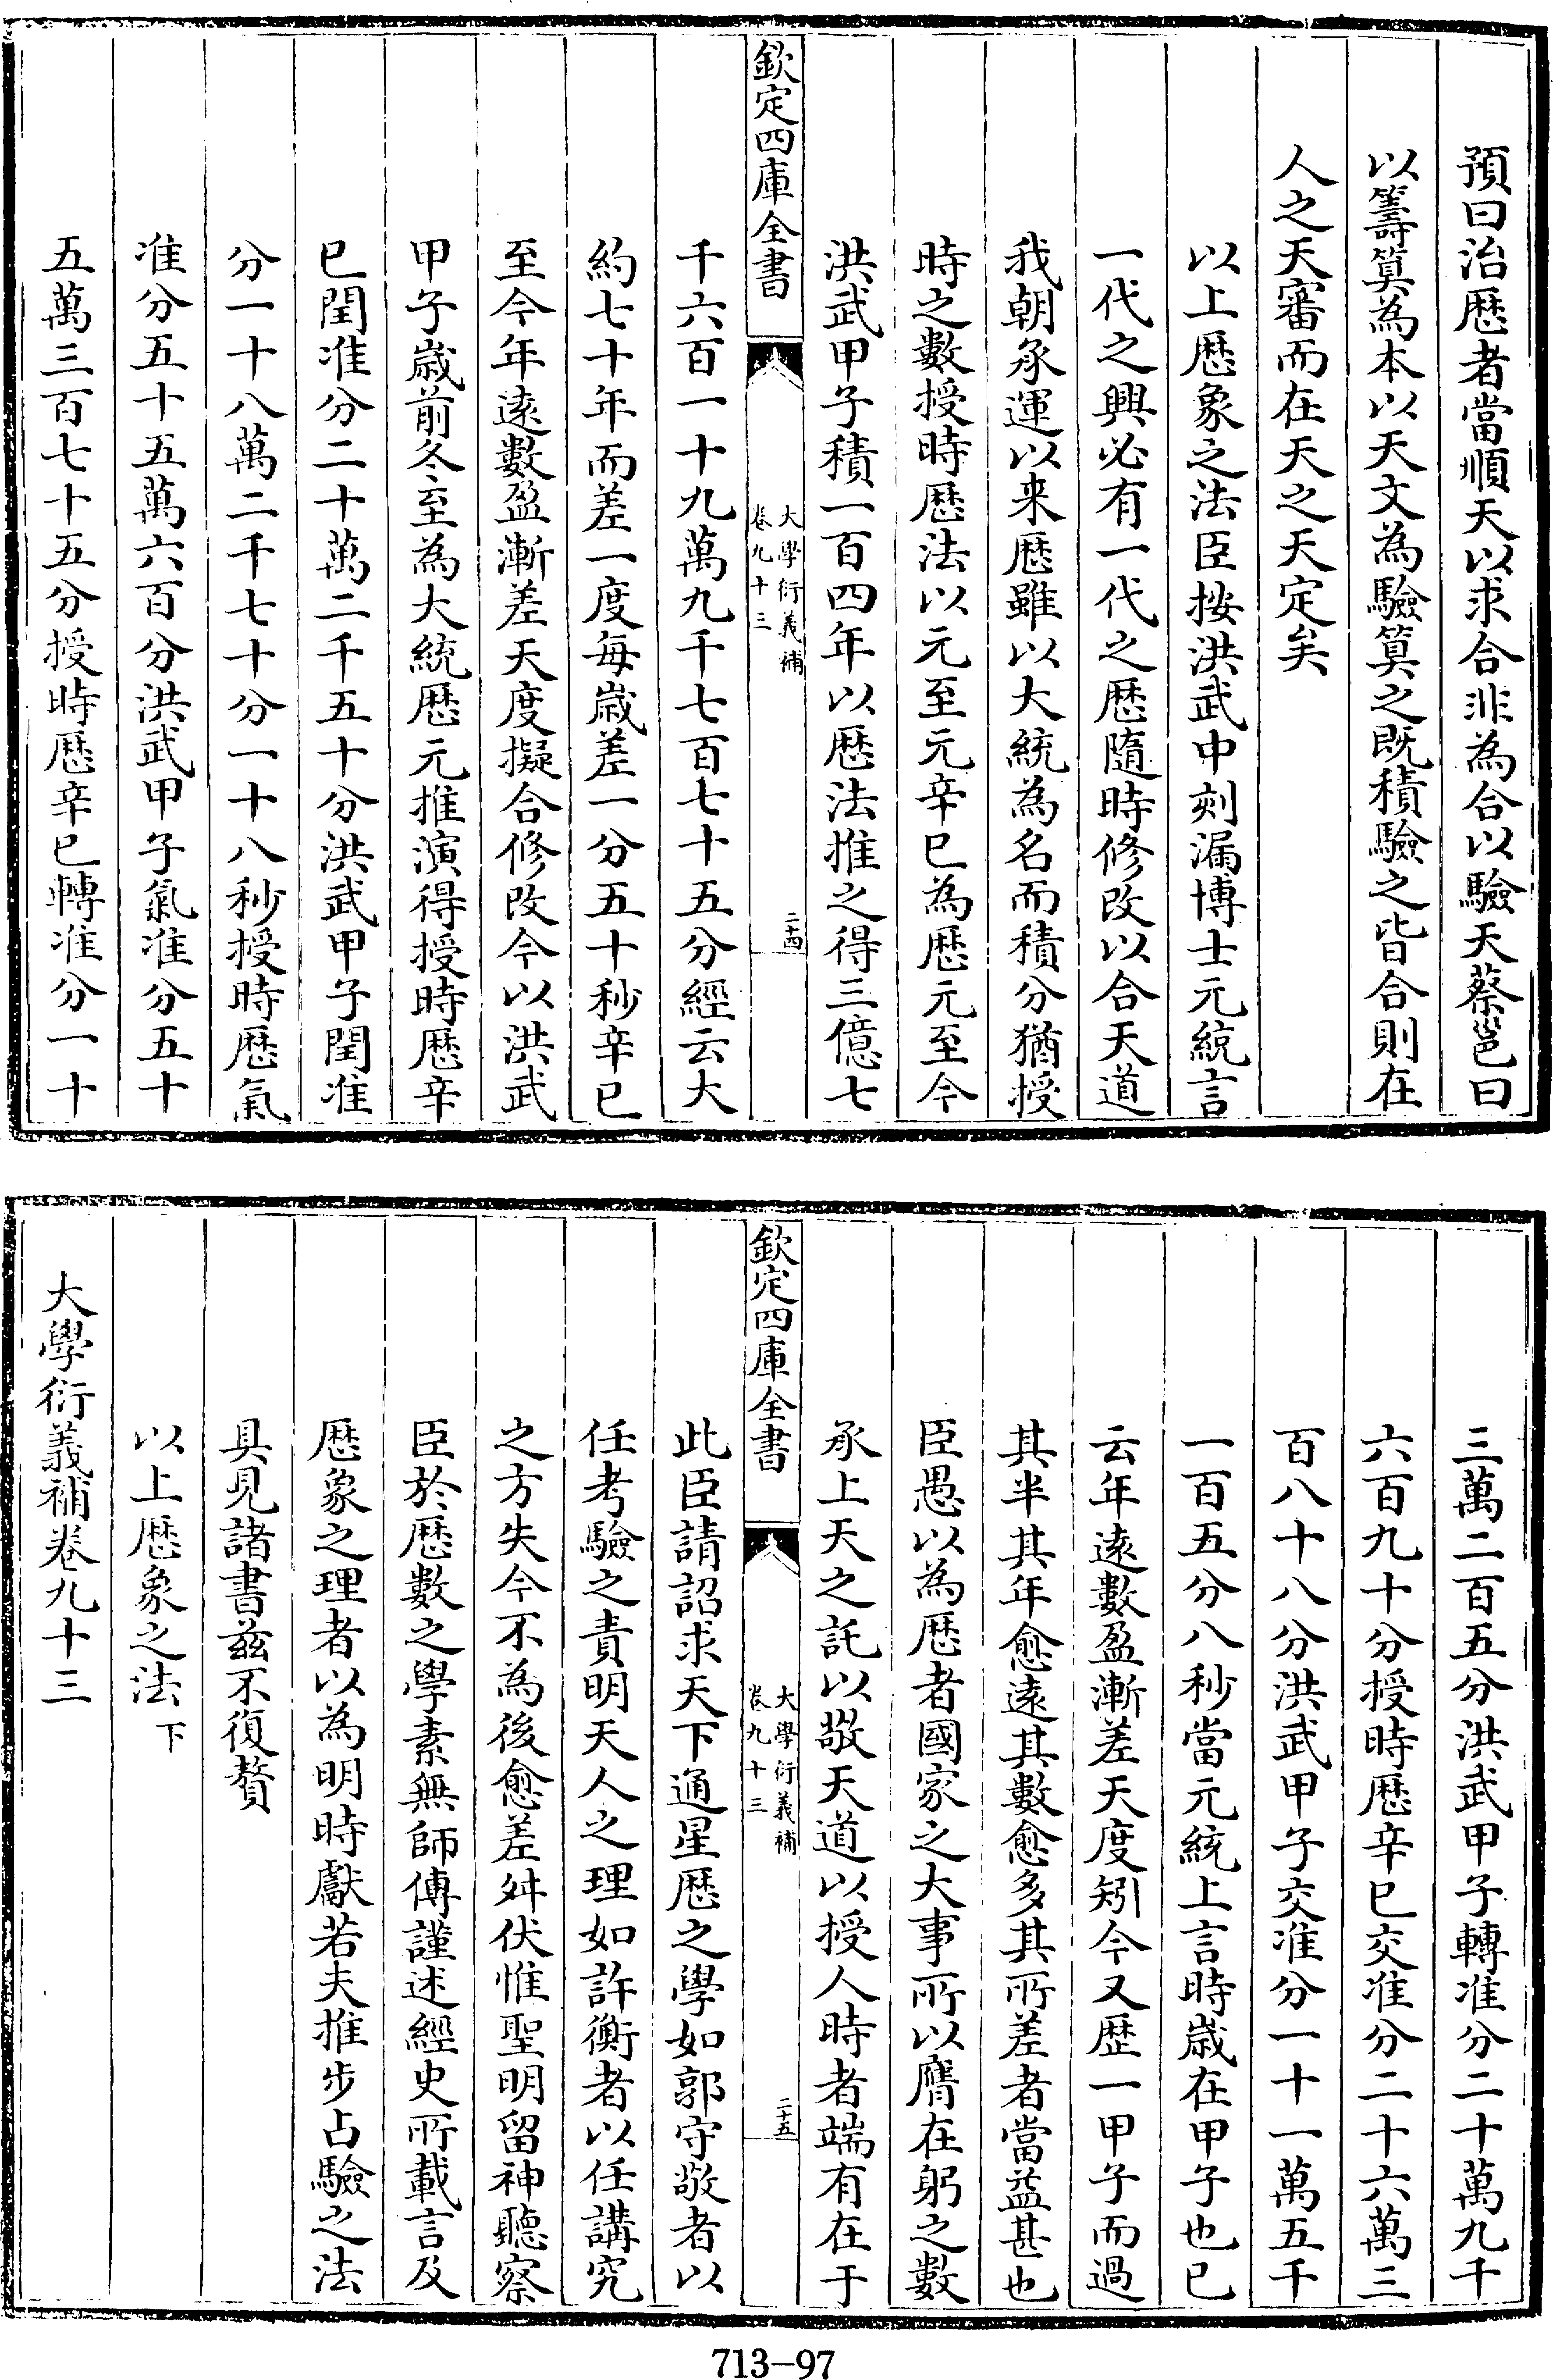 預曰治厯者當順天以求合非為合以驗天蔡邕曰
以籌算為本以天文為驗算之既積驗之皆合則在
人之天審而在天之天定矣
以上厯象之法臣按洪武中刻漏博士元統言
一代之興必有一代之厯隨時修改以合天道
我朝承運以来厯雖以大統為名而積分猶授
時之數授時厯法以元至元辛巳為厯元至今
洪武甲子積一百四年以厯法推之得三億七
欽定四庫全書
大學衍義補
卷九十三
二十四
千六百一十九萬九千七百七十五分經云大
約七十年而差一度每歳差一分五十秒辛巳
至今年遠數盈漸差天度擬合修改今以洪武
甲子歳前冬至為大統厯元推演得授時厯辛
巳閏准分二十萬二千五十分洪武甲子閏准
分一十八萬二千七十分一十八秒授時厯氣
准分五十五萬六百分洪武甲子氣准分五十
五萬三百七十五分授時厯辛巳轉准分一十
三萬二百五分洪武甲子轉准分二十萬九千
六百九十分授時厯辛巳交准分二十六萬三
百八十八分洪武甲子交准分一十一萬五千
一百五分八秒當元統上言時歳在甲子也已
云年遠數盈漸差天度矧今又歴一甲子而過
其半其年愈遠其數愈多其所差者當益甚也
臣愚以為厯者國家之大事所以膺在躬之數
承上天之託以敬天道以授人時者端有在于
欽定四庫全書
大學衍義補
卷九十三
二十五
此臣請詔求天下通星厯之學如郭守敬者以
任考驗之責明天人之理如許衡者以任講究
之方失今不為後愈差舛伏惟聖明留神聽察
臣於厯數之學素無師傅謹述經史所載言及
厯象之理者以為明時獻若夫推步占驗之法
具見諸書兹不復贅
以上厯象之法下
大學衍義補卷九十三
713-97